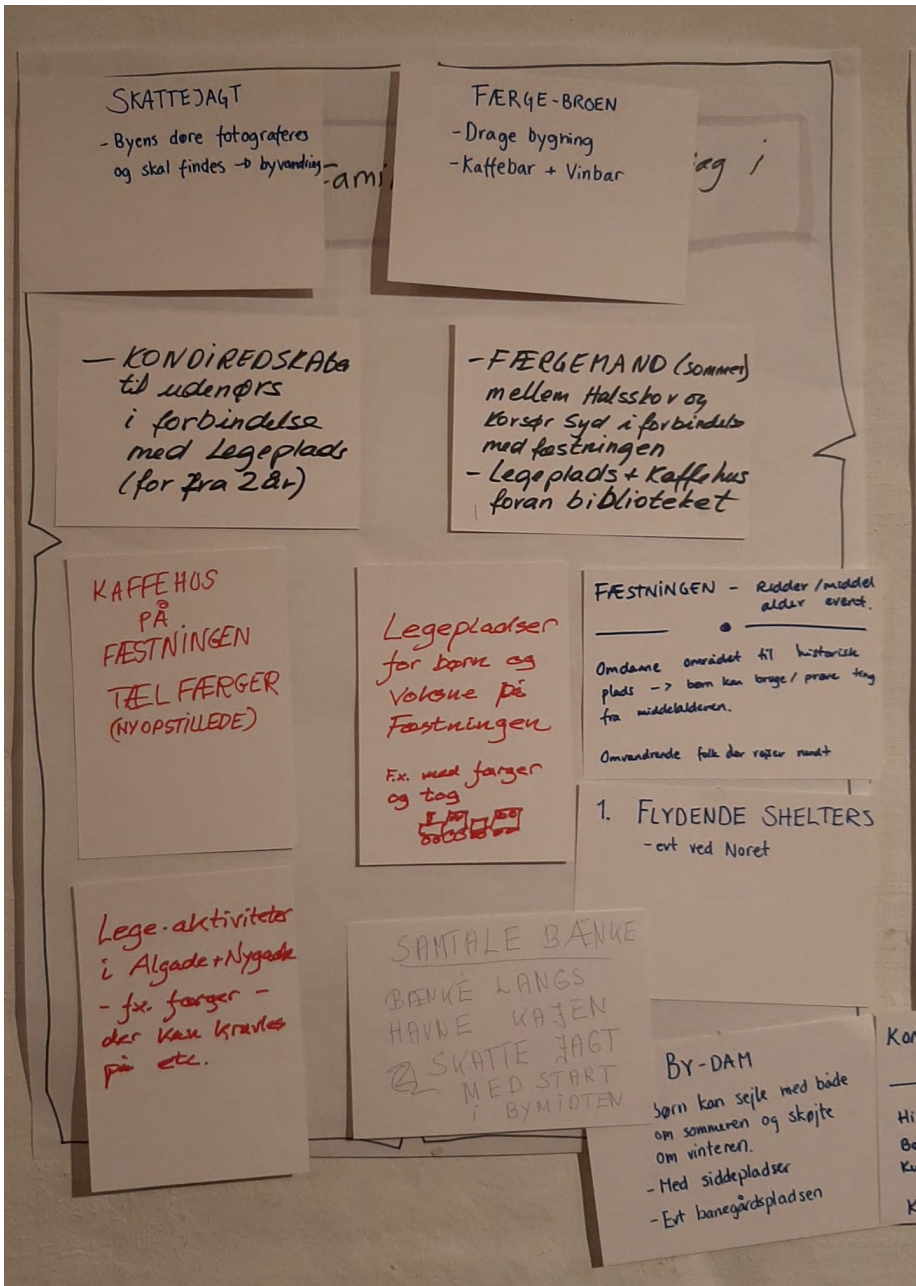 SKATTEJAGT
- Byens døre fotograferes
og skal findes → byvandring
FÆRGE-BROEN
- Drage bygning
- Kaffebar + Vinbar
i
- KONDIREDSKABE
til udenørs
i forbindelse
med Legeplads
(for fra 2 år)
- FÆRGEMAND (sommer)
mellem Halsskov og
Korsør Syd i forbindelse
med fæstningen
- Legeplads + Kaffehus
foran biblioteket
KAFFEHUS
PÅ
FÆSTNINGEN
TÆL FÆRGER
(NYOPSTILLEDE)
Legepladser
for børn og
Voksne på
Fæstningen
F.x. med færger
og tog
FÆSTNINGEN - Ridder/middel
alder event.
Omdanne området til historisk
plads -> børn kan bruge/prøve ting
fra middelalderen.
Omvandrende folk der rejser rundt
1. FLYDENDE SHELTERS
- evt ved Noret
Lege-aktiviteter
i Algade + Nygade
- fx. færger -
der kan kravles
på etc.
SAMTALE BÆNKE
BÆNKE LANGS
HAVNE KAJEN
SKATTE JAGT
MED START
i BYMIDTEN
BY-DAM
børn kan sejle med både
om sommeren og skøjte
om vinteren.
- Med siddepladser
- Evt banegårdspladsen